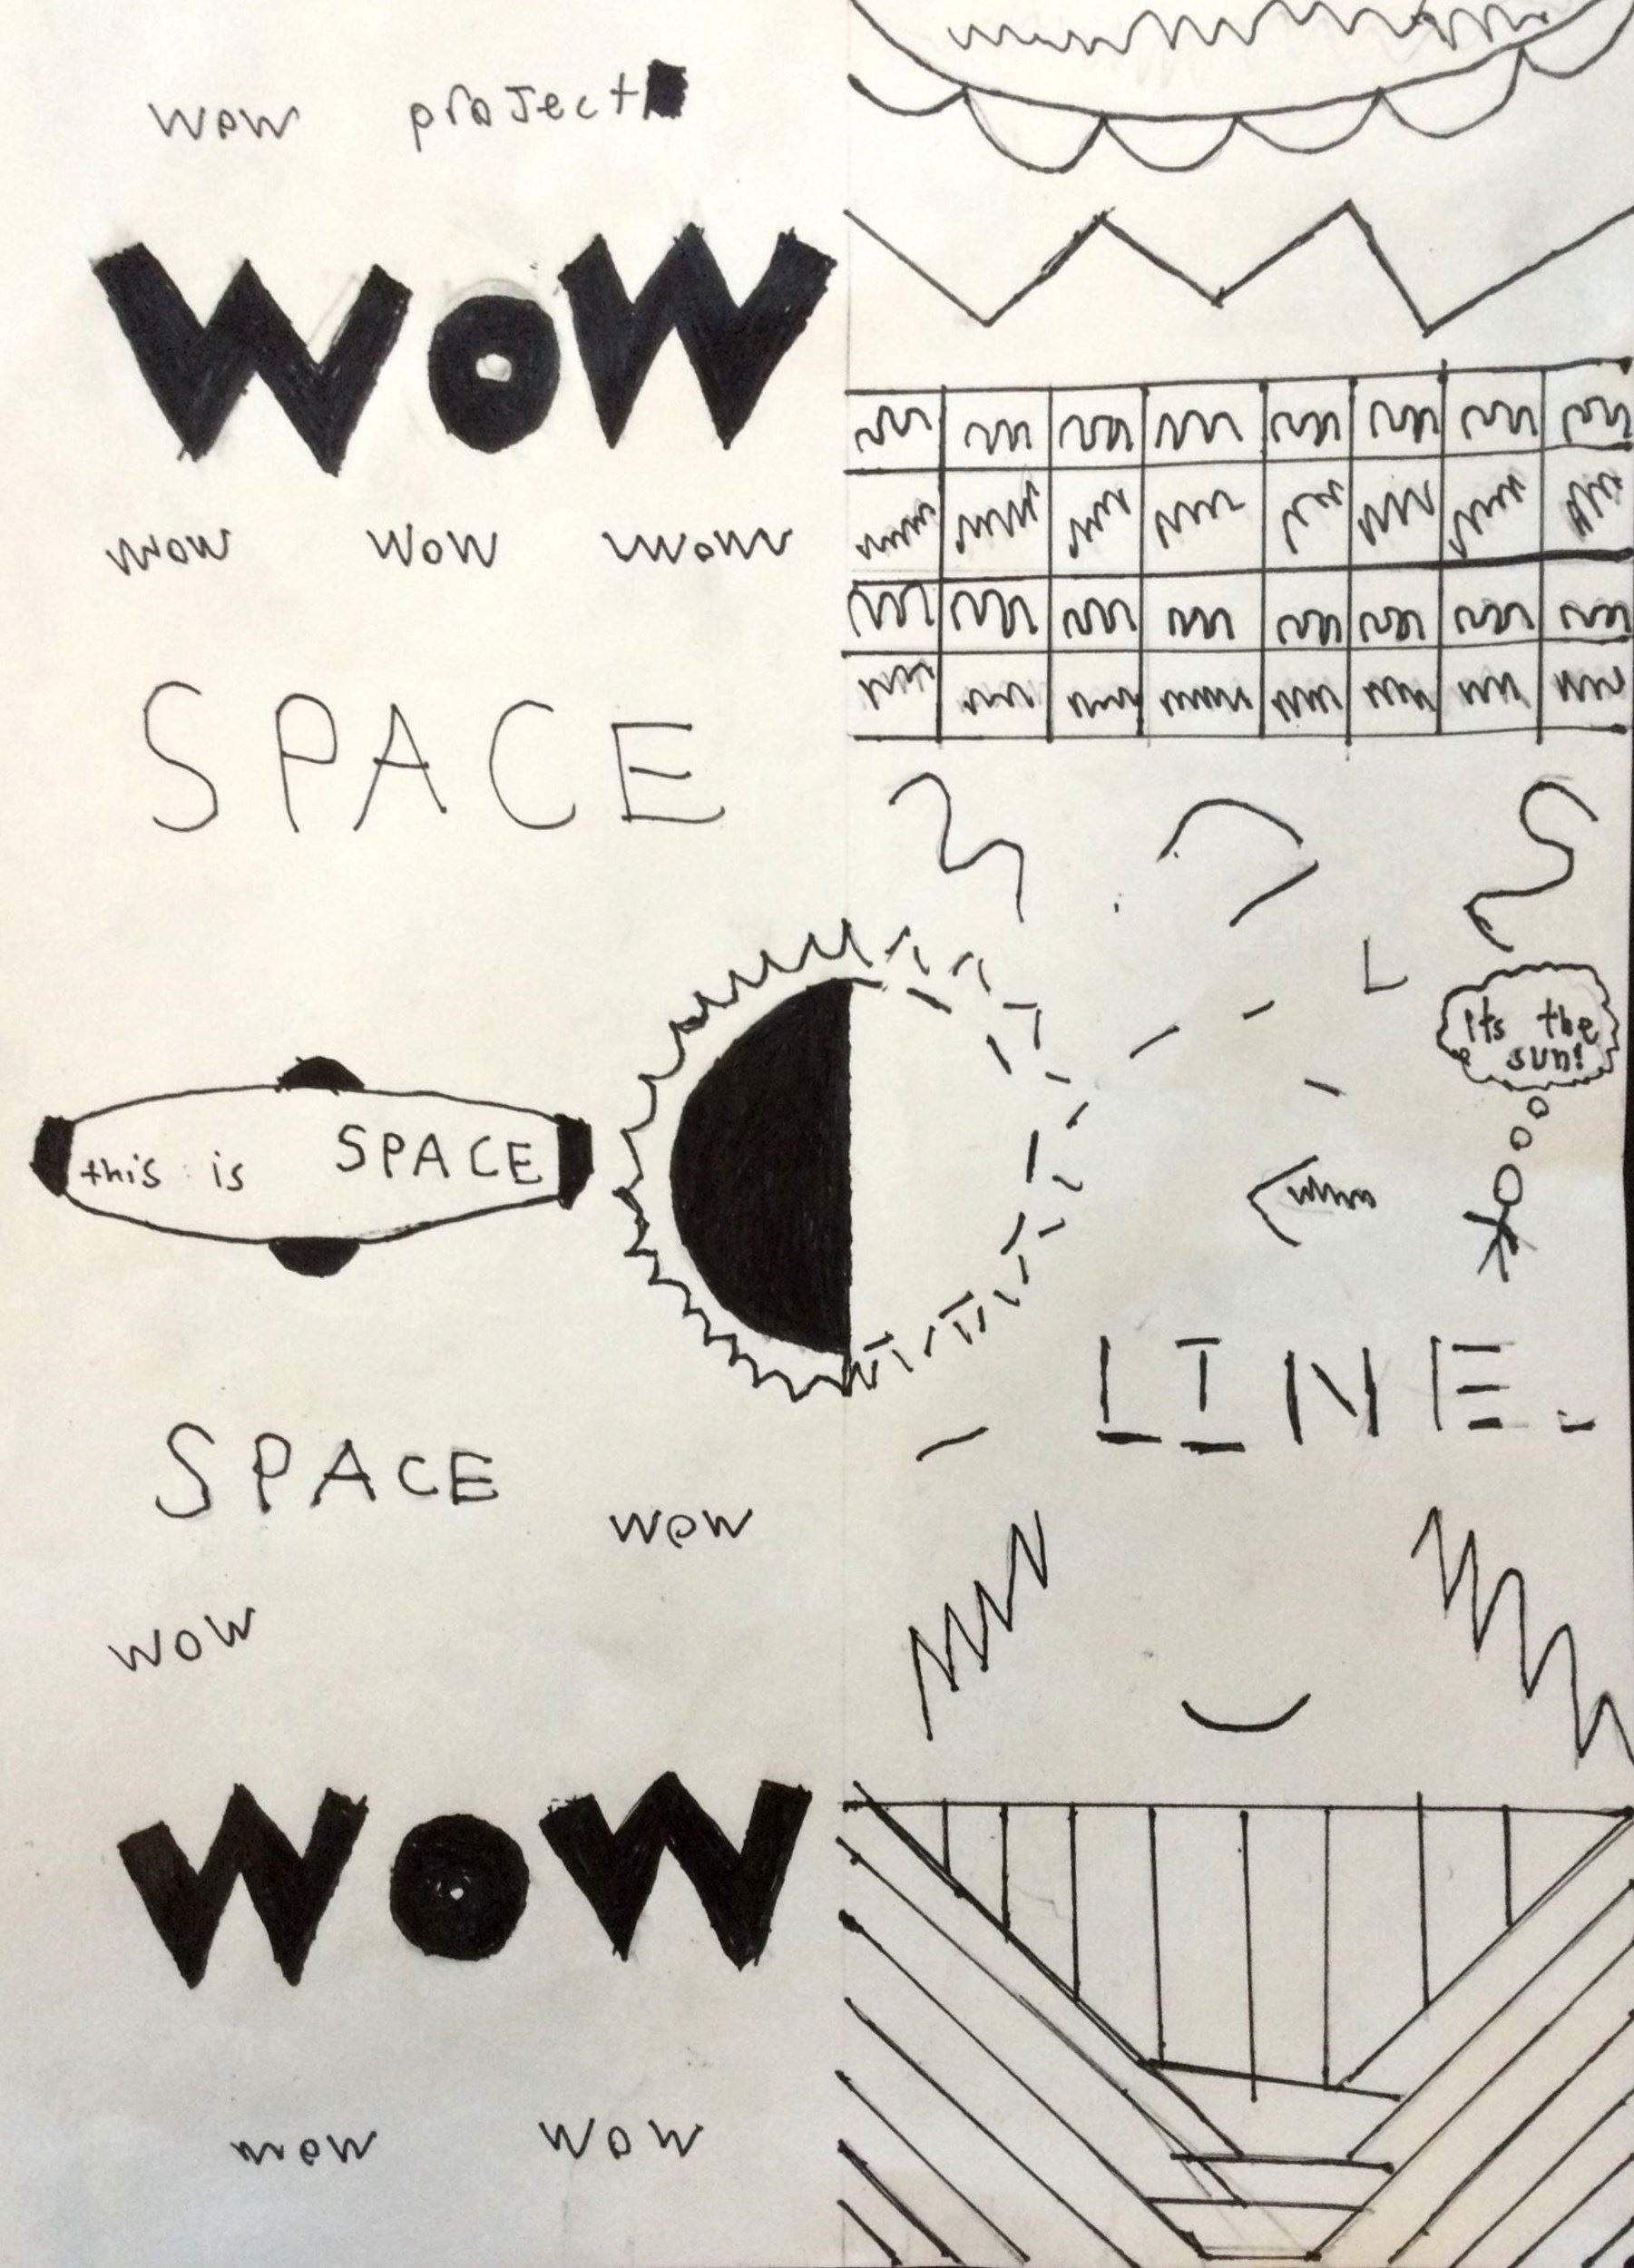 wow project
WoW
wow wow wow
SPACE
its the
sun!
this is SPACE
LINE.
SPACE
wow
wow
WoW
wow wow